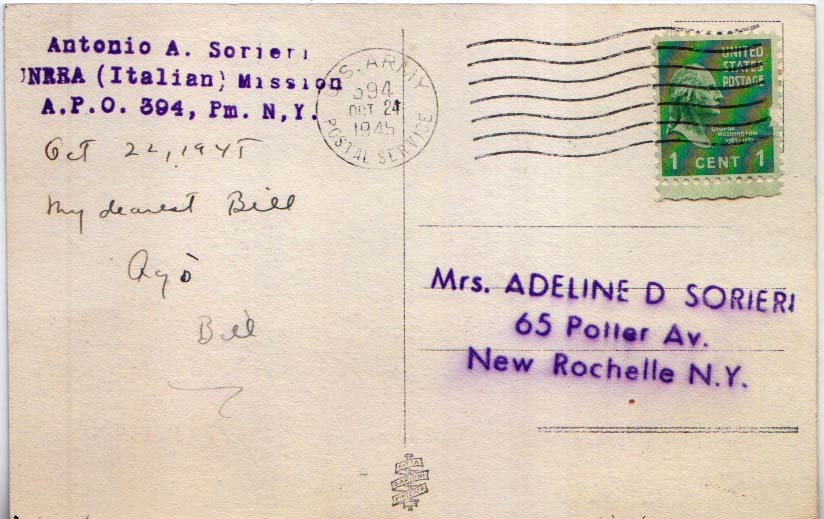 Antonio A. Sorieri
UNRRA (Italian) Mission
A.P.O. 394, Pm. N,Y.
Oct 22, 1945
My dearest Bill
Bill
U.S. ARMY
394
OCT 24
1945
POSTAL SERVICE
UNITED
STATES
POSTAGE
GEORGE
WASHINGTON
1 CENT 1
Mrs. ADELINE D SORIERI
65 Potter Av.
New Rochelle N.Y.